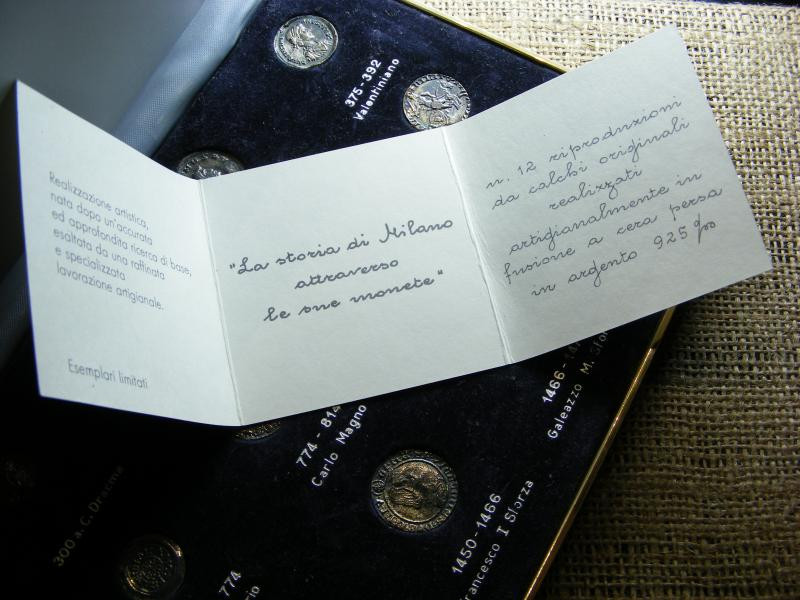 375-392
Valentiniano
Realizzazione artistica,
nata dopo un'accurata
ed approfondita ricerca di base,
esaltata da una raffinata
e specializzata
lavorazione artigianale.
Esemplari limitati
"La storia di Milano
attraverso
le sue monete"
n. 12 riproduzioni
da calchi originali
realizzati
artigianalmente in
fusione a cera persa
in argento 925‰
774 - 814
Carlo Magno
1466 - 
Galeazzo M. Sfor
300 a.C. Dracma
1450-1466
Francesco I Sforza
774